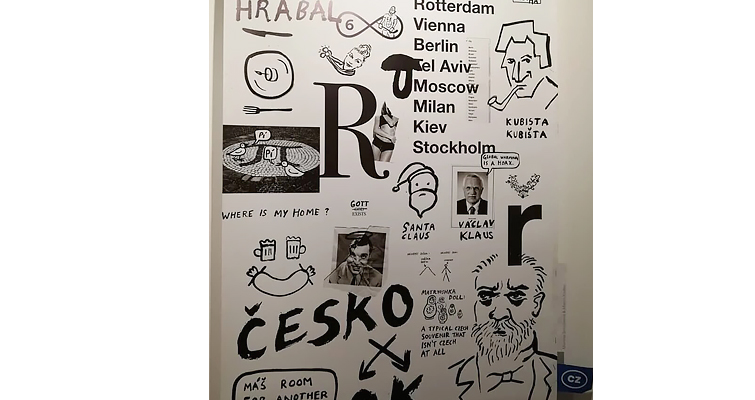 HRABAL
6
Rotterdam
Vienna
Berlin
Tel Aviv
Moscow
Milan
Kiev
Stockholm
KUBISTA
KUBIŠTA
R
Pí
Pí
GLOBAL WARMING
IS A HOAX.
WHERE IS MY HOME?
GOTT
EXISTS
SANTA
CLAUS
VÁCLAV
KLAUS
r
MATRYOSHKA
DOLL:
A TYPICAL CZECH
SOUVENIR THAT
ISN'T CZECH
AT ALL
ČESKO
OK
MÁŠ ROOM
FOR ANOTHER
CZ